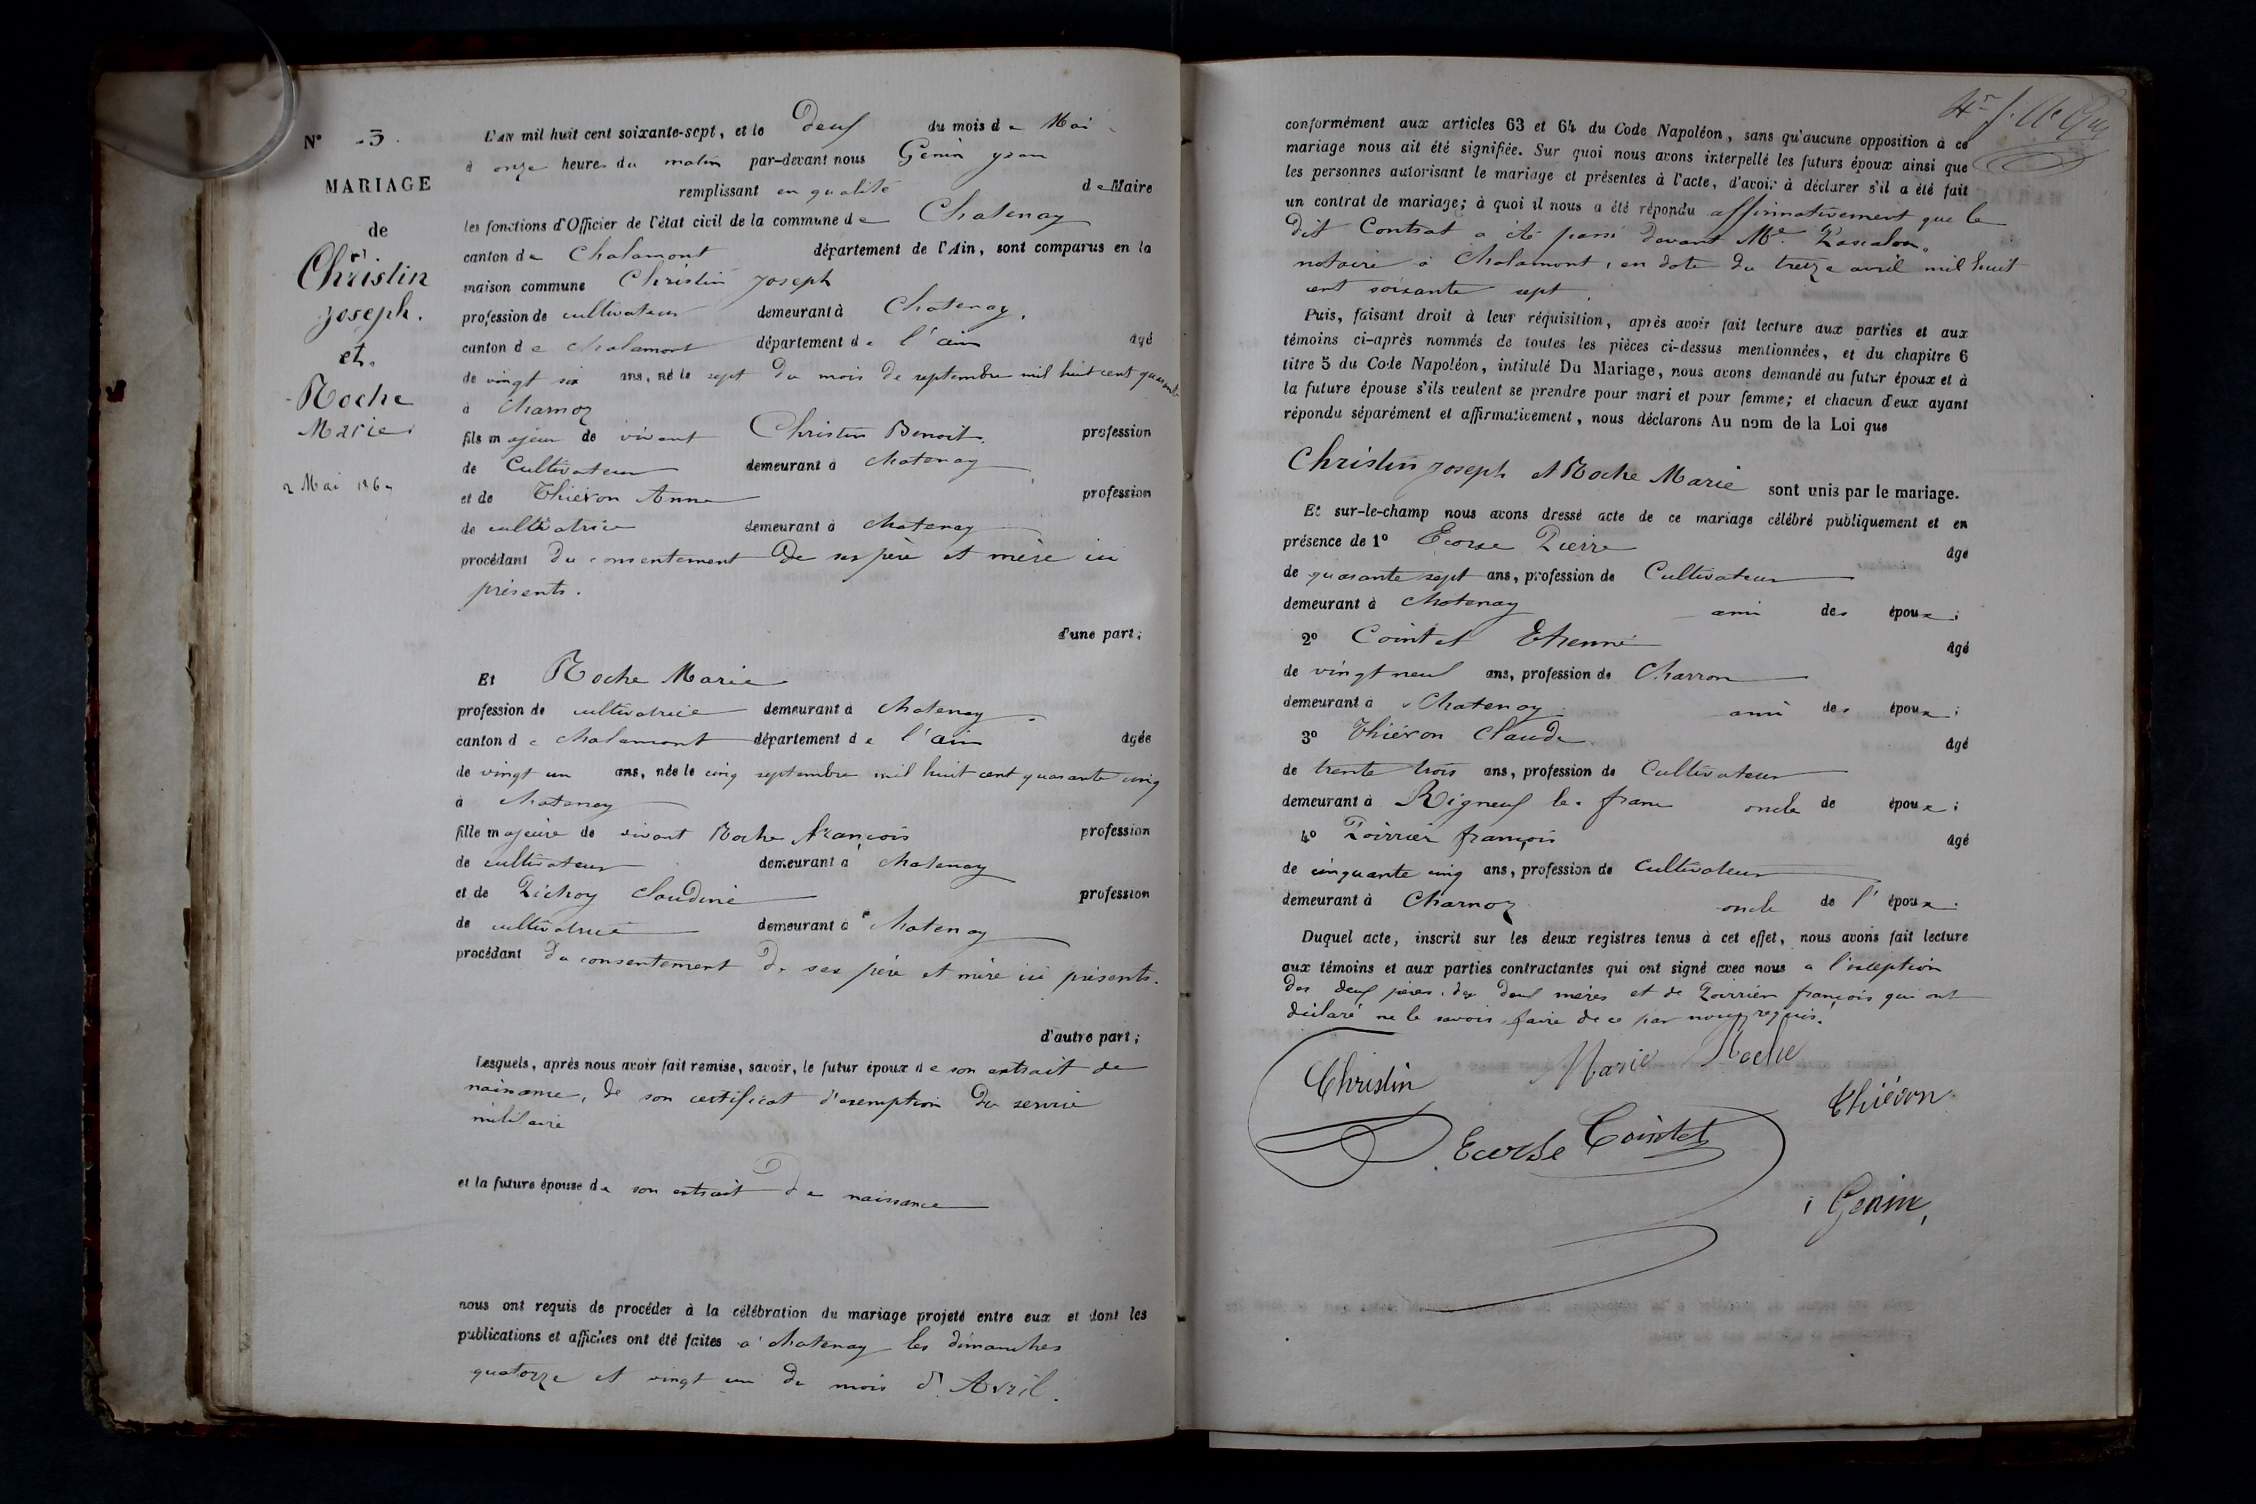 N° 3.
MARIAGE
de
Christin
Joseph.
et
Roche
Marie
2 Mai 1867
L'AN mil huit cent soixante-sept, et le Deux du mois de Mai
à onze heures du matin par-devant nous Génin
remplissant en qualité de Maire
les fonctions d'Officier de l'état civil de la commune de Chatenay
canton de Chalamont département de l'Ain, sont comparus en la
maison commune Christin Joseph
profession de cultivateur demeurant à Chatenay,
canton de Chalamont département de l'ain âgé
de vingt six ans, né le sept du mois de septembre mil huit cent quarante
à Charnoz
fils majeur de vivant Christin Benoit profession
de Cultivateur demeurant à Chatenay
et de Thiévon Anne profession
de cultivatrice demeurant à Chatenay
procédant du consentement de ses père et mère ici
présents.
d'une part;
Et Roche Marie
profession de cultivatrice demeurant à Chatenay
canton de Chalamont département de l'ain âgée
de vingt un ans, née le cinq septembre mil huit cent quarante cinq
à Chatenay
fille majeure de vivant Roche François profession
de cultivateur demeurant à Chatenay
et de Pichoy Claudine profession
de cultivatrice demeurant à Chatenay
procédant du consentement de ses père et mère ici présents.
d'autre part;
Lesquels, après nous avoir fait remise, savoir, le futur époux de son extrait de
naissance, de son certificat d'exemption du service
militaire
et la future épouse de son extrait de naissance
nous ont requis de procéder à la célébration du mariage projeté entre eux et dont les
publications et affiches ont été faites à Chatenay les dimanches
quatorze et vingt un du mois d'Avril.
conformément aux articles 63 et 64 du Code Napoléon, sans qu'aucune opposition à ce
mariage nous ait été signifiée. Sur quoi nous avons interpellé les futurs époux ainsi que
les personnes autorisant le mariage et présentes à l'acte, d'avoir à déclarer s'il a été fait
un contrat de mariage; à quoi il nous a été répondu affirmativement que le
dit Contrat a été passé devant Me. Pascalon,
notaire à Chalamont, en date du treize avril mil huit
cent soixante sept.
Puis, faisant droit à leur réquisition, après avoir fait lecture aux parties et aux
témoins ci-après nommés de toutes les pièces ci-dessus mentionnées, et du chapitre 6
titre 5 du Code Napoléon, intitulé Du Mariage, nous avons demandé au futur époux et à
la future épouse s'ils veulent se prendre pour mari et pour femme; et chacun d'eux ayant
répondu séparément et affirmativement, nous déclarons Au nom de la Loi que
Christin Joseph et Roche Marie sont unis par le mariage.
Et sur-le-champ nous avons dressé acte de ce mariage célébré publiquement et en
présence de 1° Ecorse Pierre âgé
de quarante sept ans, profession de Cultivateur
demeurant à Chatenay ami des époux;
2° Cointet Etienne âgé
de vingt neuf ans, profession de Charron
demeurant à Chatenay ami des époux;
3° Thiévon Claude âgé
de trente trois ans, profession de Cultivateur
demeurant à Rigneux le franc oncle de époux;
4° Poirrier françois âgé
de cinquante cinq ans, profession de Cultivateur
demeurant à Charnoz oncle de l'époux.
Duquel acte, inscrit sur les deux registres tenus à cet effet, nous avons fait lecture
aux témoins et aux parties contractantes qui ont signé avec nous a l'exception
des deux pères, des deux mères et de Poirrier françois qui ont
déclaré ne le savoir faire de ce par nous requis.
Christin Marie Roche
Thiévon
Ecorse Cointet
Genin